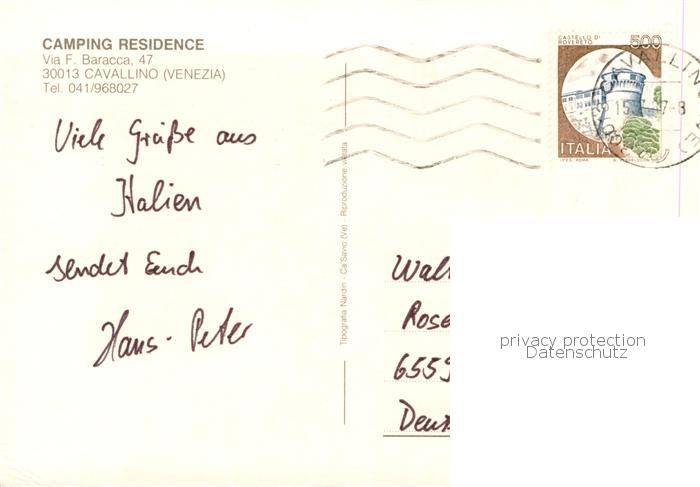 CAMPING RESIDENCE
Via F. Baracca, 47
30013 CAVALLINO (VENEZIA)
Tel. 041/968027
Viele Grüße aus
Italien
sendet Euch
Hans-Peter
Tipografia Nardin - Ca'Savio (Ve) - Riproduzione vietata
CASTELLO DI
ROVERETO
500
ITALIA
I.P.Z.S. ROMA
CAVALLINO
15
Wal
Rose
6559
Deut
privacy protection
Datenschutz